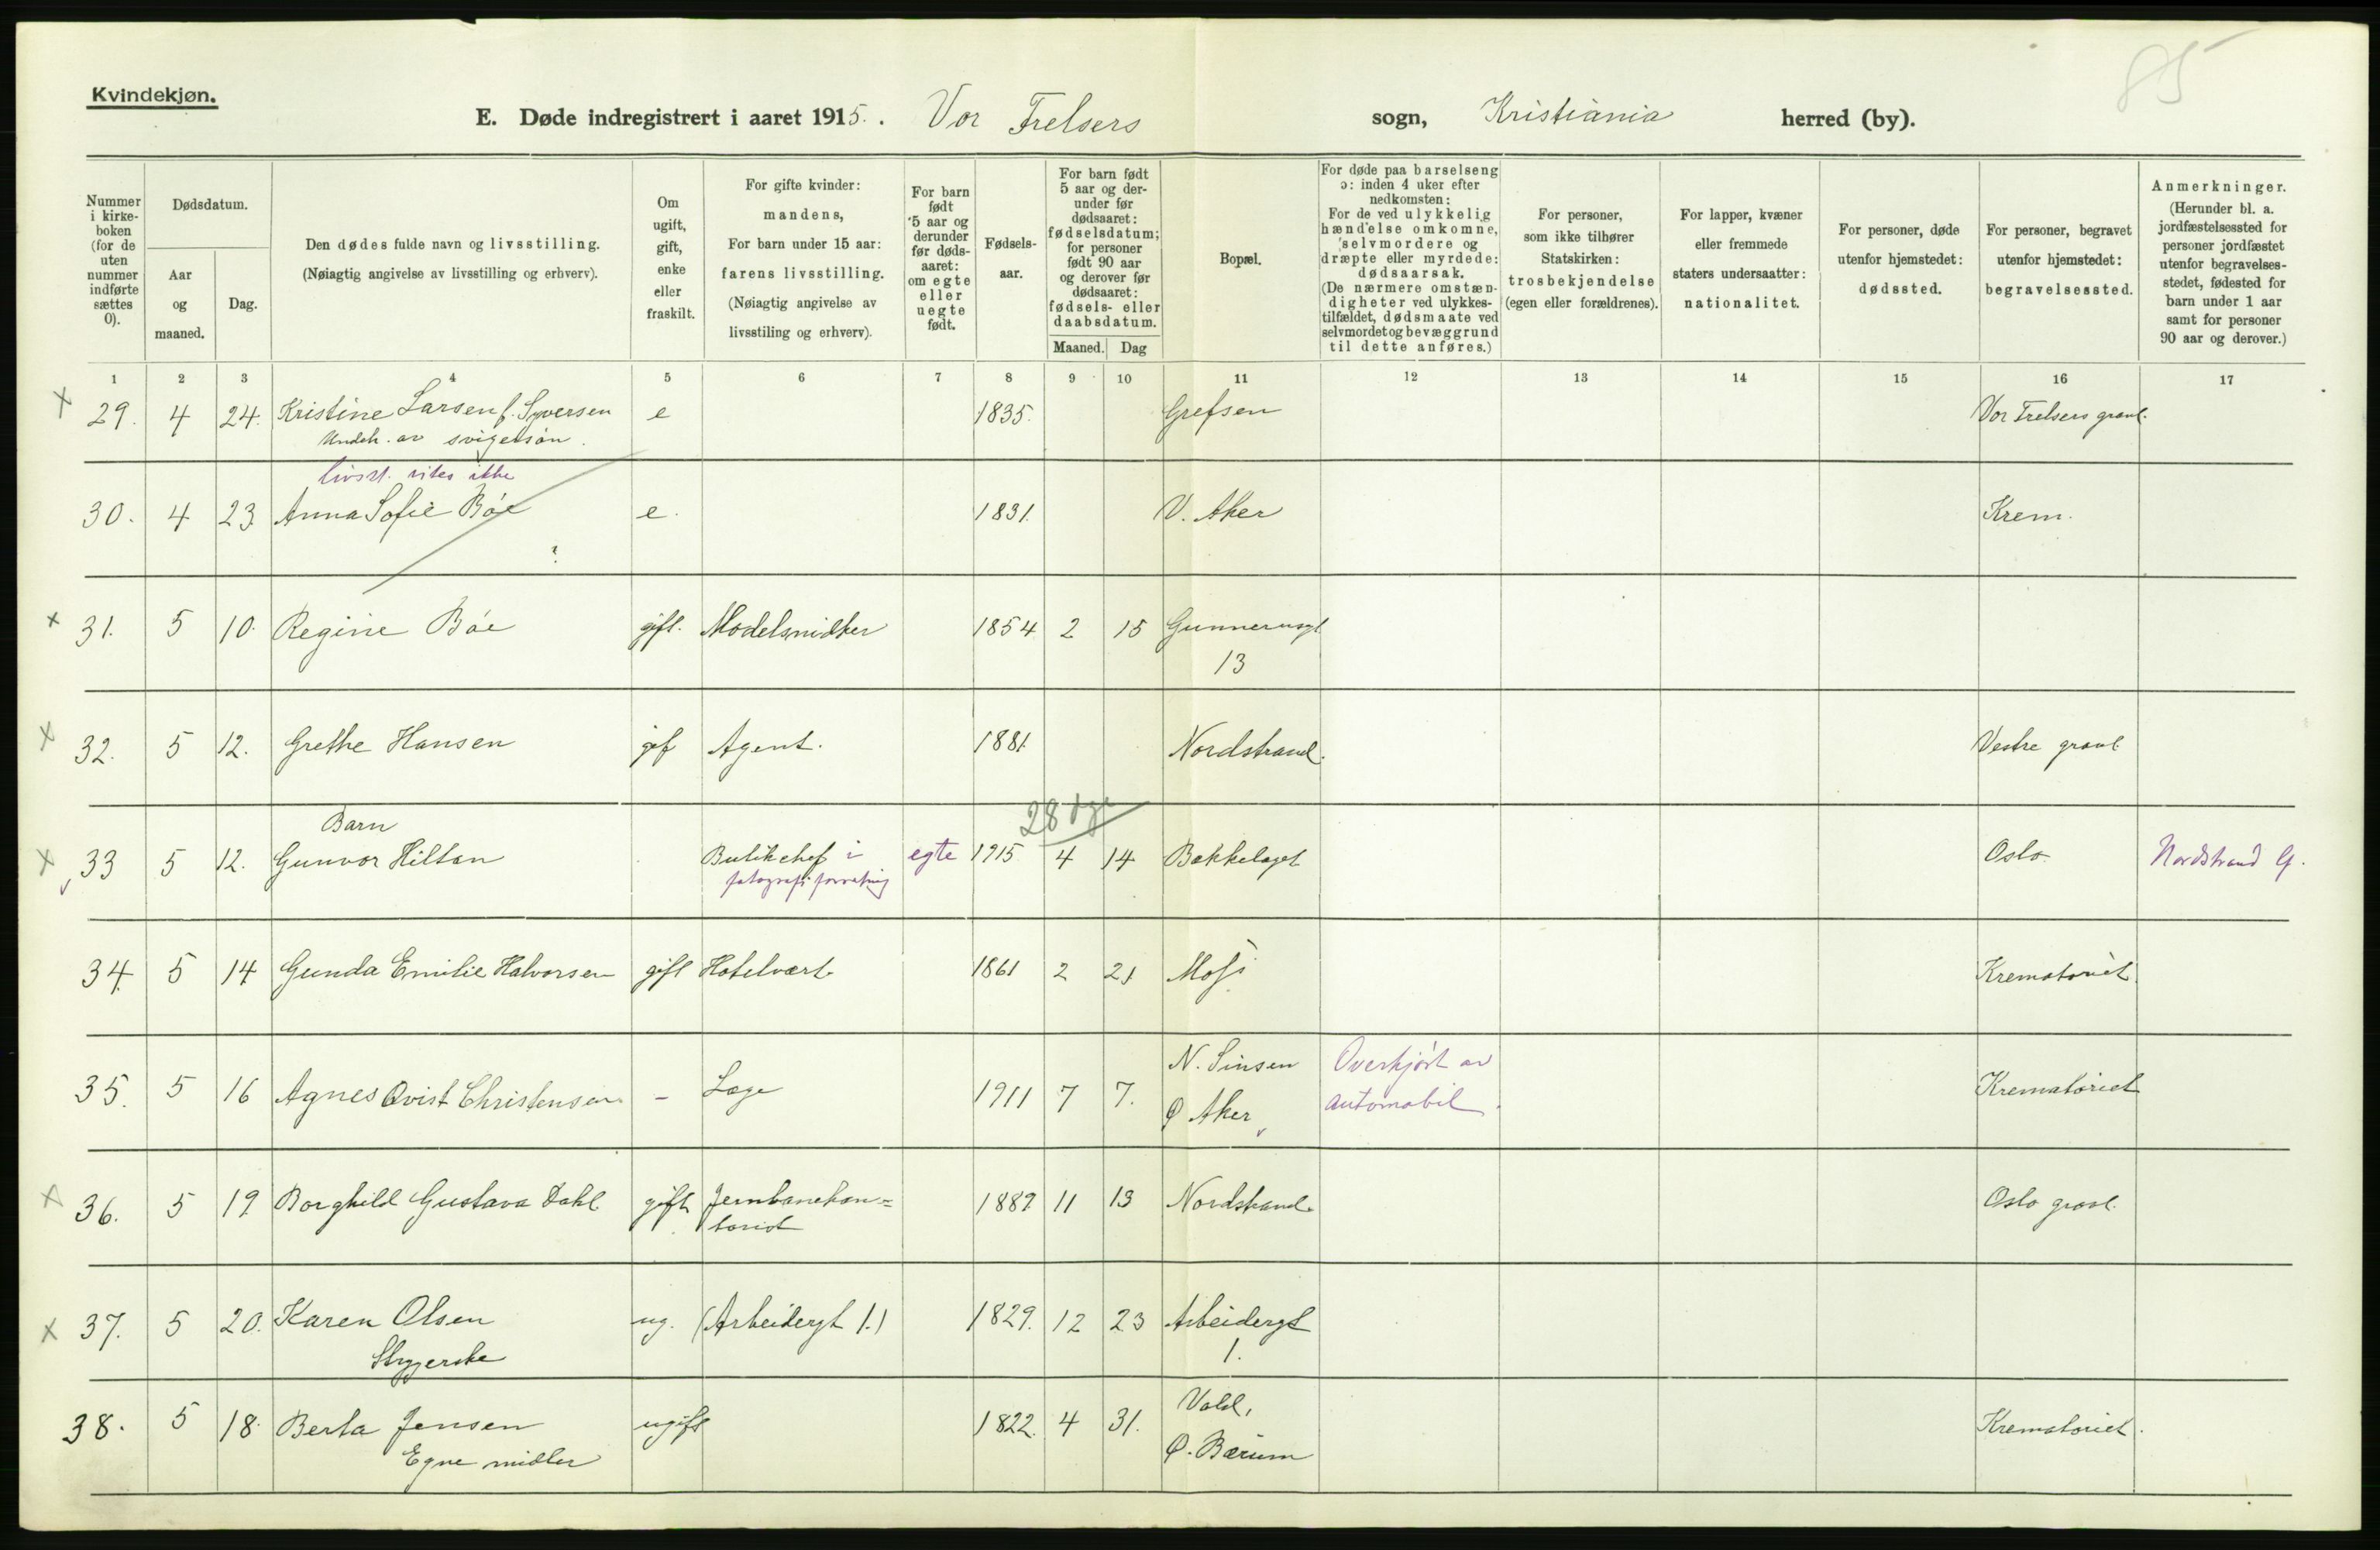 85
Kvindekjøn.
E. Døde indregistrert i aaret 1915. Vor Frelsers sogn, Kristiania herred (by).
Nummer i kirkeboken (for de uten nummer indførte sættes 0).
Dødsdatum.
Aar og maaned.
Dag.
Den dødes fulde navn og livsstilling.
(Nøiagtig angivelse av livsstilling og erhverv).
Om ugift, gift, enke eller fraskilt.
For gifte kvinder: mandens,
For barn under 15 aar: farens livsstilling.
(Nøiagtig angivelse av livsstiling og erhverv).
For barn født 5 aar og derunder før dødsaaret: om egte eller uegte født.
Fødselsaar.
For barn født 5 aar og derunder før dødsaaret: fødselsdatum; for personer født 90 aar og derover før dødsaaret: fødsels- eller daabsdatum.
Maaned. Dag
Bopæl.
For døde paa barselseng ɔ: inden 4 uker efter nedkomsten:
For de ved ulykkelig hændelse omkomne, selvmordere og dræpte eller myrdede: dødsaarsak.
(De nærmere omstændigheter ved ulykkestilfældet, dødsmaate ved selvmordet og bevæggrund til dette anføres.)
For personer, som ikke tilhører Statskirken: trosbekjendelse (egen eller forældrenes).
For lapper, kvæner eller fremmede staters undersaatter: nationalitet.
For personer, døde utenfor hjemstedet: dødssted.
For personer, begravet utenfor hjemstedet: begravelsessted.
Anmerkninger.
(Herunder bl. a. jordfæstelsessted for personer jordfæstet utenfor begravelsesstedet, fødested for barn under 1 aar samt for personer 90 aar og derover.)
1 2 3 4 5 6 7 8 9 10 11 12 13 14 15 16 17
x 29. 4 24. Kristine Larsen f. Syversen e 1835. Grefsen Vor Frelsers gravl.
Underh. av svigersøn.
livsst. vites ikke
30. 4 23 Anna Sofie Bøe e. 1831. V. Aker Krem.
?
x 31. 5 10. Regine Bøe gift. Modelsnidker 1854 2 15 Gunnerusgt
13
x 32. 5 12. Grethe Hansen gif Agent. 1881. Nordstrand. Vestre gravl
Barn 28 dge
x 33 5 12. Gunvor Hiltan Butikchef i egte 1915. 4 14 Bekkelaget Oslo. Nordstrand
fotografiforretning
34. 5 14 Gunda Emilie Halvorsen gift Hotelvært 1861 2 21 Moss Krematoriet.
N. Sinsen Overkjørt av
35. 5 16 Agnes Qvist Christensen - Læge 1911 7 7. Ø Aker automobil. Krematoriet
x 36. 5 19 Borghild Gustava Dahl gift Jernbanekon=
torist 1889 11 13 Nordstrand. Oslo gravl.
x 37. 5 20. Karen Olsen ug. (Arbeidergt 1.) 1829. 12 23 Arbeidergt
Strygerske 1.
Vold,
38. 5 18. Berta Jensen ugift 1822. 4 31. Ø. Bærum Krematoriet.
Egne midler